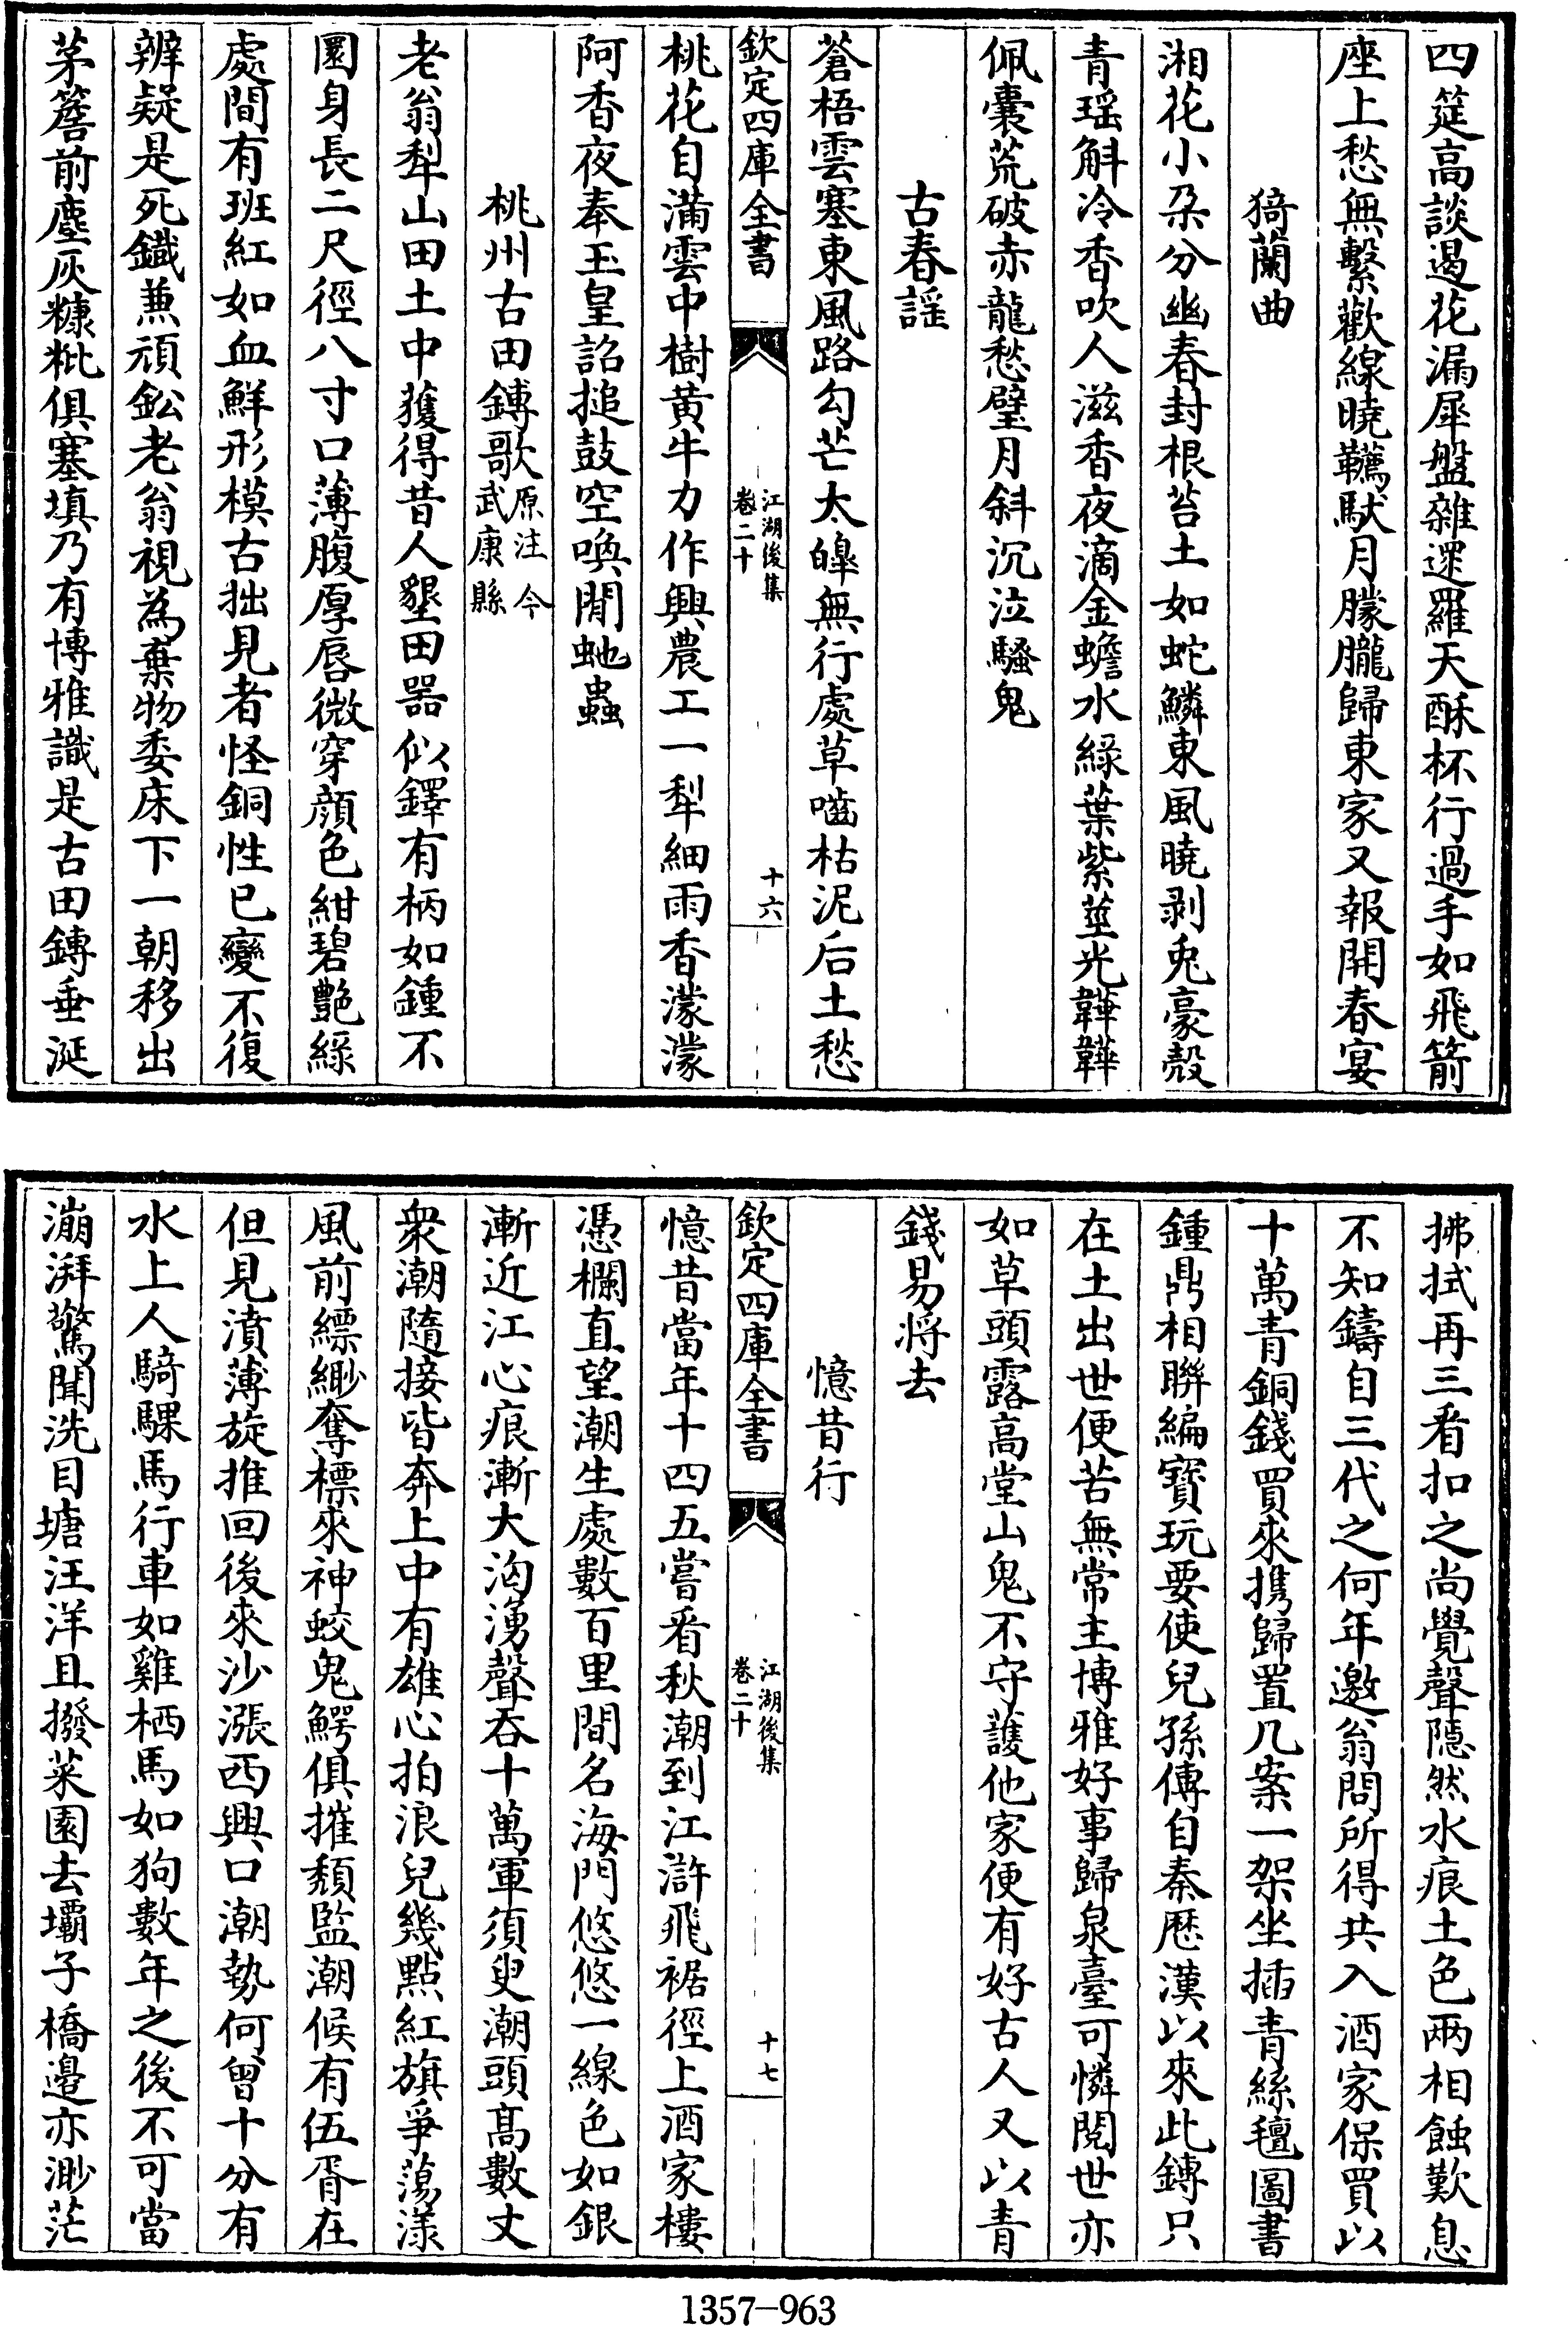 四筵高談遏花漏犀盤雜遝羅天酥杯行過手如飛箭
座上愁無繫歡線曉韉馱月朦朧歸東家又報開春宴
猗蘭曲
湘花小朶分幽春封根苔土如蛇鱗東風曉剥兎豪殻
青瑶斛冷香吹人滋香夜滴金蟾水緑葉紫莖光韡韡
佩囊荒破赤龍愁璧月斜沉泣騷鬼
古春謡
蒼梧雲塞東風路勾芒太皥無行處草嚙枯泥后土愁
欽定四庫全書
江湖後集
卷二十
十六
桃花自滿雲中樹黄牛力作興農工一犁細雨香濛濛
阿香夜奉玉皇詔搥鼓空喚閒虵蟲
桃州古田鎛歌原注今武康縣
老翁犁山田土中獲得昔人墾田器似鐸有柄如鍾不
圜身長二尺徑八寸口薄腹厚唇微穿顔色紺碧艶緑
處間有班紅如血鮮形模古拙見者怪銅性已變不復
辨疑是死鐡兼頑鈆老翁視為棄物委床下一朝移出
茅簷前塵灰糠粃俱塞填乃有博雅識是古田鎛垂涎
拂拭再三看扣之尚覺聲隠然水痕土色兩相蝕歎息
不知鑄自三代之何年邀翁問所得共入酒家保買以
十萬青銅錢買來携歸置几案一架坐插青絲氊圖書
鍾鼎相聨編寳玩要使兒孫傳自秦厯漢以來此鎛只
在土出世便苦無常主博雅好事歸泉臺可憐閱世亦
如草頭露高堂山鬼不守護他家便有好古人又以青
錢易将去
憶昔行
欽定四庫全書
江湖後集
卷二十
十七
憶昔當年十四五嘗看秋潮到江滸飛裾徑上酒家樓
憑欄直望潮生處數百里間名海門悠悠一線色如銀
漸近江心痕漸大洶湧聲吞十萬軍須臾潮頭髙數丈
衆潮隨接皆奔上中有雄心拍浪兒幾點紅旗爭蕩漾
風前縹緲奪標來神蛟鬼鰐俱摧頽監潮候有伍胥在
但見濆薄旋推回後來沙漲西興口潮勢何曾十分有
水上人騎騍馬行車如雞栖馬如狗數年之後不可當
漰湃驚聞洗目塘汪洋且撥菜園去壩子橋邉亦渺茫
1357-963